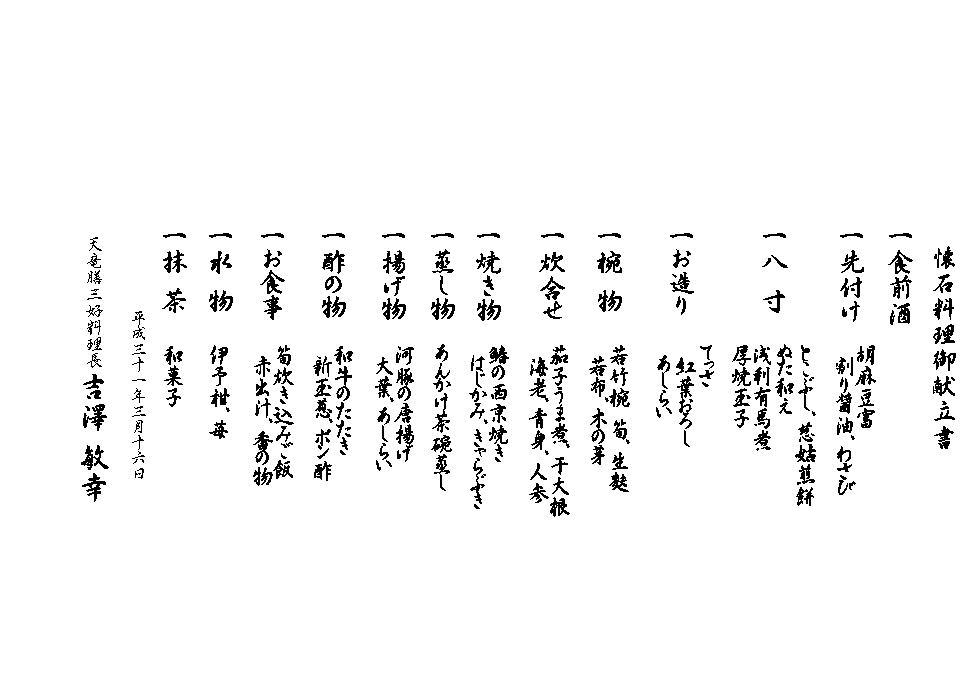 懐石料理御献立書
一 食前酒
一 先付け
胡麻豆富
割り醤油、わさび
一 八寸
とこぶし、慈姑煎餅
ぬた和え
浅利有馬煮
厚焼玉子
一 お造り
てっさ
紅葉おろし
あしらい
一 椀物
若竹椀 筍、生麩
若布、木の芽
一 炊合せ
茄子うま煮、干大根
海老、青身、人参
一 焼き物
鰆の西京焼き
はじかみ、きゃらぶき
一 蒸し物
あんかけ茶碗蒸し
一 揚げ物
河豚の唐揚げ
大葉、あしらい
一 酢の物
和牛のたたき
新玉葱、ポン酢
一 お食事
筍炊き込みご飯
赤出汁、香の物
一 水物
伊予柑、苺
一 抹茶
和菓子
平成三十一年三月十六日
天竜膳三好料理長 吉澤 敏幸